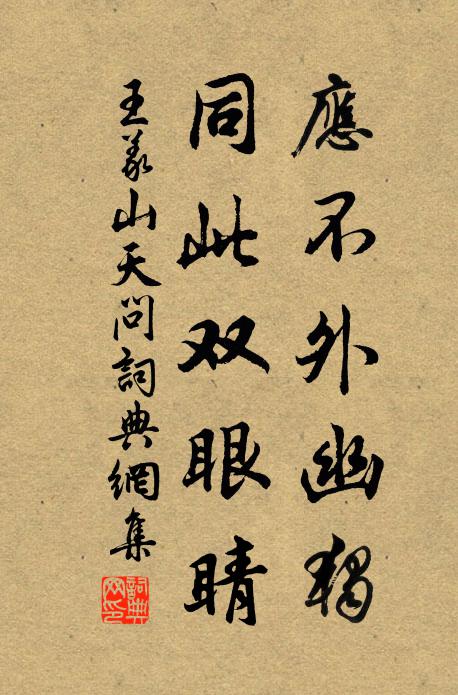 應不外幽獨
同此双眼睛
王義山天問詞典網集
詞典網印